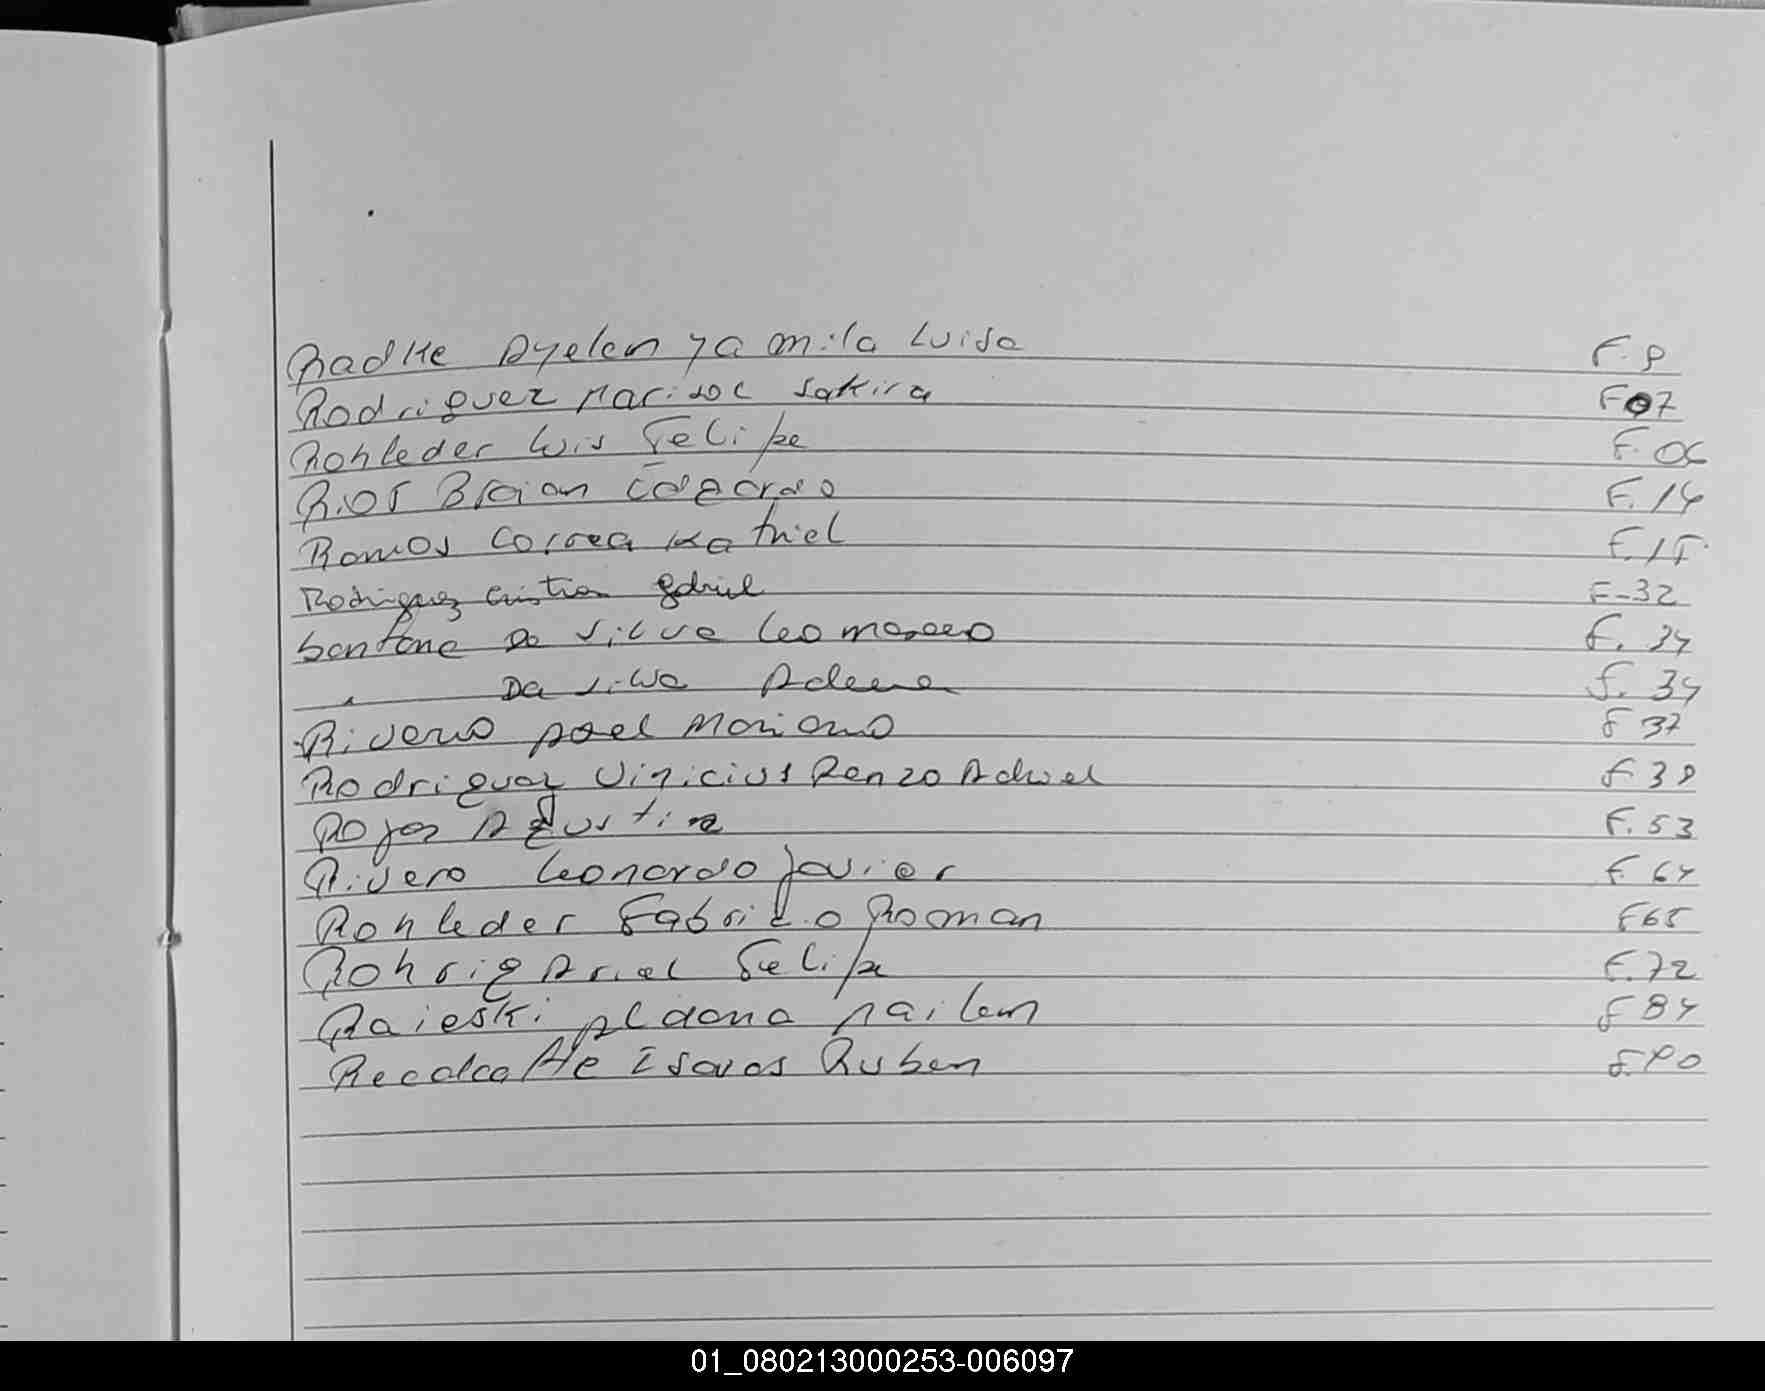 Radke Ayelen Yamila Luisa F. 9
Rodriguez Marisol Sakira F07
Rohleder Luis Felipe F. 06
Rios Braian Edgardo F. 14
Ramos Correa Kathiel F. 15
Rodriguez Cristian Gabriel F-32
Santana Da Silva Leomar F. 34
" Da Silva F. 34
Rivero Mariano F 37
Rodriguez Vinicius Renzo Adriel F 38
Rojas Agustina F. 53
Rivero Leonardo Javier F. 64
Rohleder Fabrizio Roman F65
Rohrig Ariel Felipe F. 72
Raieski Aldana F 84
Recalcatte Isaias Ruben F. 90
01_080213000253-006097